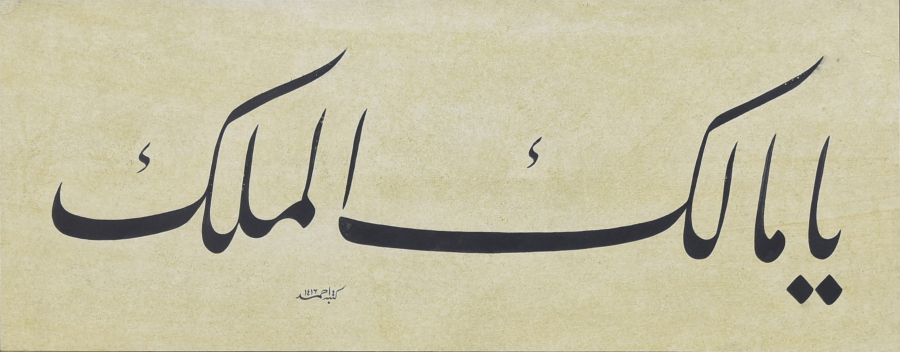 يا مالك الملك
كتبه احمد ١٤١٢